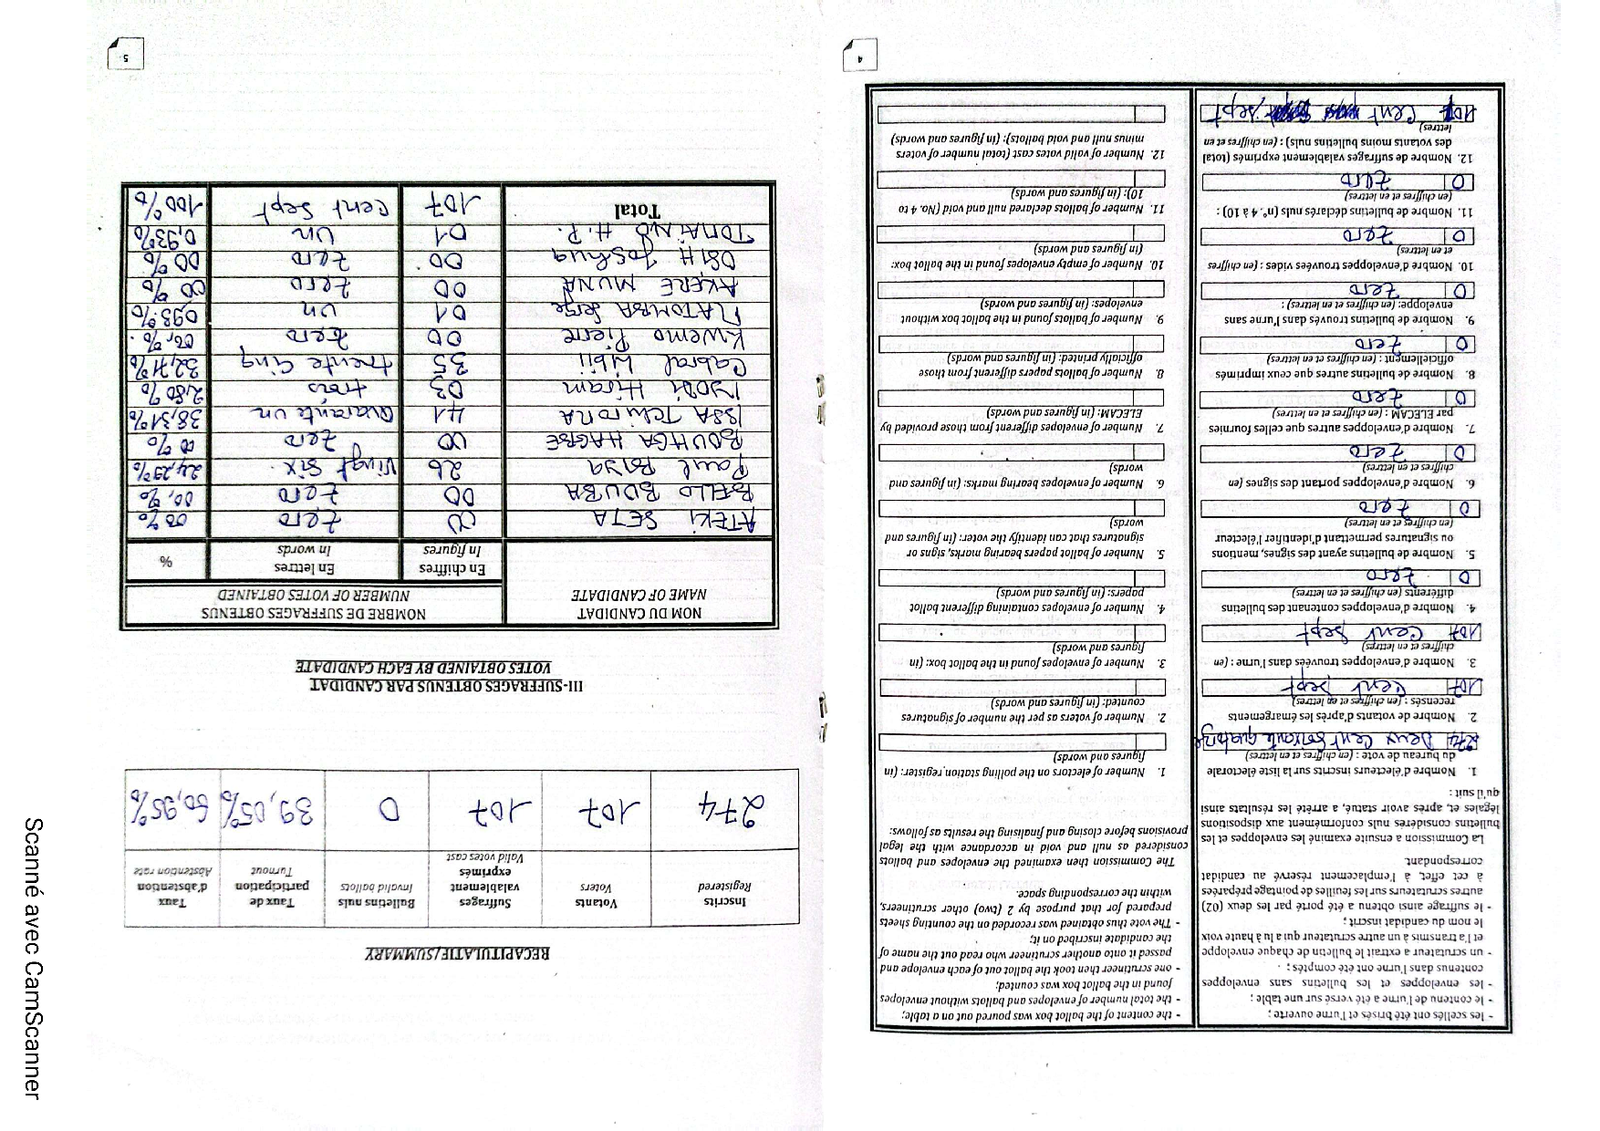 - les scellés ont été brisés et l'urne ouverte ;
- le contenu de l'urne a été versé sur une table ;
- les enveloppes et les bulletins sans enveloppes
contenus dans l'urne ont été comptés ;
- un scrutateur a extrait le bulletin de chaque enveloppe
et l'a transmis à un autre scrutateur qui a lu à haute voix
le nom du candidat inscrit ;
- le suffrage ainsi obtenu a été porté par les deux (02)
autres scrutateurs sur les feuilles de pointage préparées
à cet effet, à l'emplacement réservé au candidat
correspondant.
La Commission a ensuite examiné les enveloppes et les
bulletins considérés nuls conformément aux dispositions
légales et, après avoir statué, a arrêté les résultats ainsi
qu'il suit :
1. Nombre d'électeurs inscrits sur la liste électorale
du bureau de vote : (en chiffres et en lettres)
274 Deux Cent Soixante quatorze
2. Nombre de votants d'après les émargements
recensés : (en chiffres et en lettres)
107 Cent Sept
3. Nombre d'enveloppes trouvées dans l'urne : (en
chiffres et en lettres)
107 Cent Sept
4. Nombre d'enveloppes contenant des bulletins
différents (en chiffres et en lettres)
0 Zero
5. Nombre de bulletins ayant des signes, mentions
ou signatures permettant d'identifier l'électeur
(en chiffres et en lettres)
0 Zero
6. Nombre d'enveloppes portant des signes (en
chiffres et en lettres)
0 Zero
7. Nombre d'enveloppes autres que celles fournies
par ELECAM : (en chiffres et en lettres)
0 Zero
8. Nombre de bulletins autres que ceux imprimés
officiellement : (en chiffres et en lettres)
0 Zero
9. Nombre de bulletins trouvés dans l'urne sans
enveloppe: (en chiffres et en lettres) :
0 Zero
10. Nombre d'enveloppes trouvées vides : (en chiffres
et en lettres)
0 Zero
11. Nombre de bulletins déclarés nuls (n°. 4 à 10) :
(en chiffres et en lettres)
0 Zero
12. Nombre de suffrages valablement exprimés (total
des votants moins bulletins nuls) : (en chiffres et en
lettres)
107 Cent sept
- the content of the ballot box was poured out on a table;
- the total number of envelopes and ballots without envelopes
found in the ballot box was counted;
- one scrutineer then took the ballot out of each envelope and
passed it onto another scrutineer who read out the name of
the candidate inscribed on it;
- The vote thus obtained was recorded on the counting sheets
prepared for that purpose by 2 (two) other scrutineers,
within the corresponding space.
The Commission then examined the envelopes and ballots
considered as null and void in accordance with the legal
provisions before closing and finalising the results as follows:
1. Number of electors on the polling station register: (in
figures and words)
2. Number of voters as per the number of signatures
counted: (in figures and words)
3. Number of envelopes found in the ballot box: (in
figures and words)
4. Number of envelopes containing different ballot
papers: (in figures and words)
5. Number of ballot papers bearing marks, signs or
signatures that can identify the voter: (in figures and
words)
6. Number of envelopes bearing marks: (in figures and
words)
7. Number of envelopes different from those provided by
ELECAM: (in figures and words)
8. Number of ballots papers different from those
officially printed: (in figures and words)
9. Number of ballots found in the ballot box without
envelopes: (in figures and words)
10. Number of empty envelopes found in the ballot box:
(in figures and words)
11. Number of ballots declared null and void (No. 4 to
10): (in figures and words)
12. Number of valid votes cast (total number of voters
minus null and void ballots): (in figures and words)
4
RECAPITULATIF/SUMMARY
Inscrits Registered | Votants Voters | Suffrages valablement exprimés Valid votes cast | Bulletins nuls Invalid ballots | Taux de participation Turnout | Taux d'abstention Abstention rate
274 | 107 | 107 | 0 | 39,05% | 60,95%
III-SUFFRAGES OBTENUS PAR CANDIDAT
VOTES OBTAINED BY EACH CANDIDATE
NOM DU CANDIDAT NAME OF CANDIDATE | NOMBRE DE SUFFRAGES OBTENUS NUMBER OF VOTES OBTAINED
En chiffres In figures | En lettres In words | %
ATEKI SETA | 00 | Zero | 00%
BELLO BOUBA | 00 | Zero | 00,%
Paul BIYA | 26 | Vingt Six | 24,29%
BOUHGA HAGBE | 00 | Zero | 00%
ISSA Tchiroma | 41 | Quarante un | 38,31%
IYODI Hiram | 03 | trois | 2,80%
Cabral Libii | 35 | trente Cinq | 32,71%
Kwemo Pierre | 00 | Zero | 00,%
MATOMBA Serge | 01 | Un | 0,93%
AKERE MUNA | 00 | Zero | 00%
OSIH Joshua | 00 | Zero | 00%
TOMAINO H.P. | 01 | Un | 0,93%
Total | 107 | Cent Sept | 100%
5
Scanné avec CamScanner